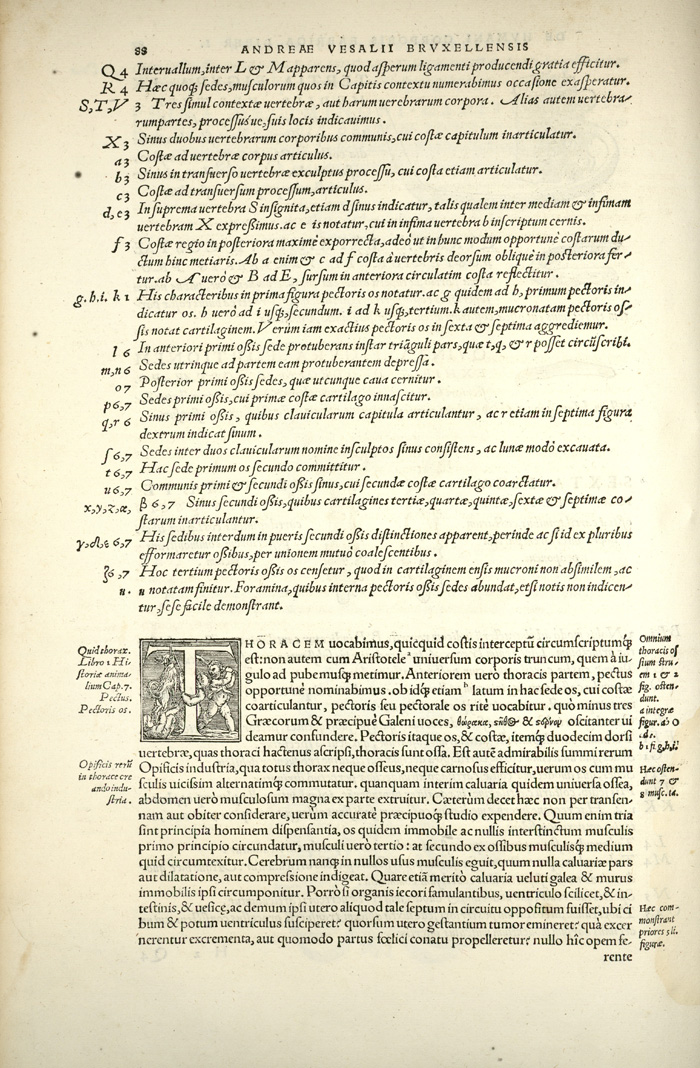 88 ANDREAE VESALII BRVXELLENSIS
Q 4 Interuallum, inter L & M apparens, quod asperum ligamenti producendi gratia efficitur.
R 4 Hæc quoq; sedes, musculorum quos in Capitis contextu numerabimus occasione exasperatur.
S, T, V 3 Tres simul contextæ uertebræ, aut harum uerebrarum corpora. Alias autem uertebra-
rum partes, processus'ue, suis locis indicauimus.
X 3 Sinus duobus uertebrarum corporibus communis, cui costæ capitulum inarticulatur.
a 3 Costæ ad uertebræ corpus articulus.
b 3 Sinus in transuerso uertebræ exculptus processu, cui costa etiam articulatur.
c 3 Costæ ad transuersum processum, articulus.
d, e 3 In suprema uertebra S insignita, etiam d sinus indicatur, talis qualem inter mediam & infimam
uertebram X expressimus. ac e is notatur, cui in infima uertebra b inscriptum cernis.
f 3 Costæ regio in posteriora maximè exporrecta, adeò ut in hunc modum opportunè costarum du-
ctum hinc metiaris. Ab a enim & c ad f costa à uertebris deorsum obliquè in posteriora fer-
tur. ab A uerò & B ad E, sursum in anteriora circulatim costa reflectitur.
g. h. i. k 1 His characteribus in prima figura pectoris os notatur. ac g quidem ad h, primum pectoris in-
dicatur os. h uerò ad i usq;, secundum. i ad k usq;, tertium. k autem, mucronatam pectoris os-
sis notat cartilaginem. Verùm iam exactius pectoris os in sexta & septima aggrediemur.
l 6 In anteriori primi ossis sede protuberans instar triāguli pars, quæ t, q, & r posset circūscribi.
m, n 6 Sedes utrinque ad partem eam protuberantem depressa.
o 7 Posterior primi ossis sedes, quæ utcunque caua cernitur.
p 6, 7 Sedes primi ossis, cui primæ costæ cartilago innascitur.
q, r 6 Sinus primi ossis, quibus clauicularum capitula articulantur, ac r etiam in septima figura
dextrum indicat sinum.
s 6, 7 Sedes inter duos clauicularum nomine insculptos sinus consistens, ac lunæ modò excauata.
t 6, 7 Hac sede primum os secundo committitur.
u 6, 7 Communis primi & secundi ossis sinus, cui secundæ costæ cartilago coarctatur.
x, y, z, α, β 6, 7 Sinus secundi ossis, quibus cartilagines tertiæ, quartæ, quintæ, sextæ & septimæ co-
starum inarticulantur.
γ, δ, ε 6, 7 His sedibus interdum in pueris secundi ossis distinctiones apparent, perinde ac si id ex pluribus
efformaretur ossibus, per unionem mutuò coalescentibus.
ζ 6, 7 Hoc tertium pectoris ossis os censetur, quod in cartilaginem ensis mucroni non absimilem, ac
η. η notatam finitur. Foramina, quibus interna pectoris ossis sedes abundat, etsi notis non indicen-
tur, sese facile demonstrant.
Quid thorax.
Libro 1 Hi-
storiæ anima-
lium Cap. 7.
Pectus.
Pectoris os.
THORACEM uocabimus, quicquid costis interceptū circumscriptumq́;
est: non autem cum Aristotele a uniuersum corporis truncum, quem à iu-
gulo ad pubem usq; metimur. Anteriorem uerò thoracis partem, pectus
opportunè nominabimus. ob idq́; etiam b latum in hac sede os, cui costæ
coarticulantur, pectoris seu pectorale os ritè uocabitur. quo minus tres
Græcorum & præcipuè Galeni uoces, θώρακα, στῆθος & στέρνον oscitanter ui
deamur confundere. Pectoris itaque os, & costæ, itemq́; duodecim dorsi
uertebræ, quas thoraci hactenus ascripsi, thoracis sunt ossa. Est autē admirabilis summi rerum
Opificis industria, qua totus thorax neque osseus, neque carnosus efficitur, uerum os cum mu
sculis uicissim alternatimq́; commutat. quanquam interim caluaria quidem uniuersa ossea,
abdomen uerò musculosum magna ex parte extruitur. Cæterùm decet hæc non per transen-
nam aut obiter considerare, uerùm accuratè præcipuoq́; studio expendere. Quum enim tria
sint principia hominem dispensantia, os quidem immobile ac nullis interstinctum musculis
primo principio circundatur, musculi uerò tertio: at secundo ex ossibus musculisq́; medium
quid circumtexitur. Cerebrum nanq; in nullos usus musculis eguit, quum nulla caluariæ pars
aut dilatatione, aut compressione indigeat. Quare etiā meritò caluaria ueluti galea & murus
immobilis ipsi circumponitur. Porrò si organis iecori famulantibus, uentriculo scilicet, & in-
testinis, & uesicæ, ac demum ipsi utero aliquod tale septum in circuitu oppositum fuisset, ubi ci
bum & potum uentriculus susciperet? quorsum utero gestantium tumor emineret? quà excer
nerentur excrementa, aut quomodo partus fœlici conatu propelleretur? nullo hîc opem fe-
rente
Opificis rerū
in thorace cre
ando indu-
stria.
Omnium
thoracis os
sium
em 1 & 2
fig. osten-
dunt.
a integræ
figur. ab O
b 1 fi g, h, i.
Hæc osten-
dunt 7 &
8 musc. ta.
Hæc com-
monstrant
priores
figuræ.